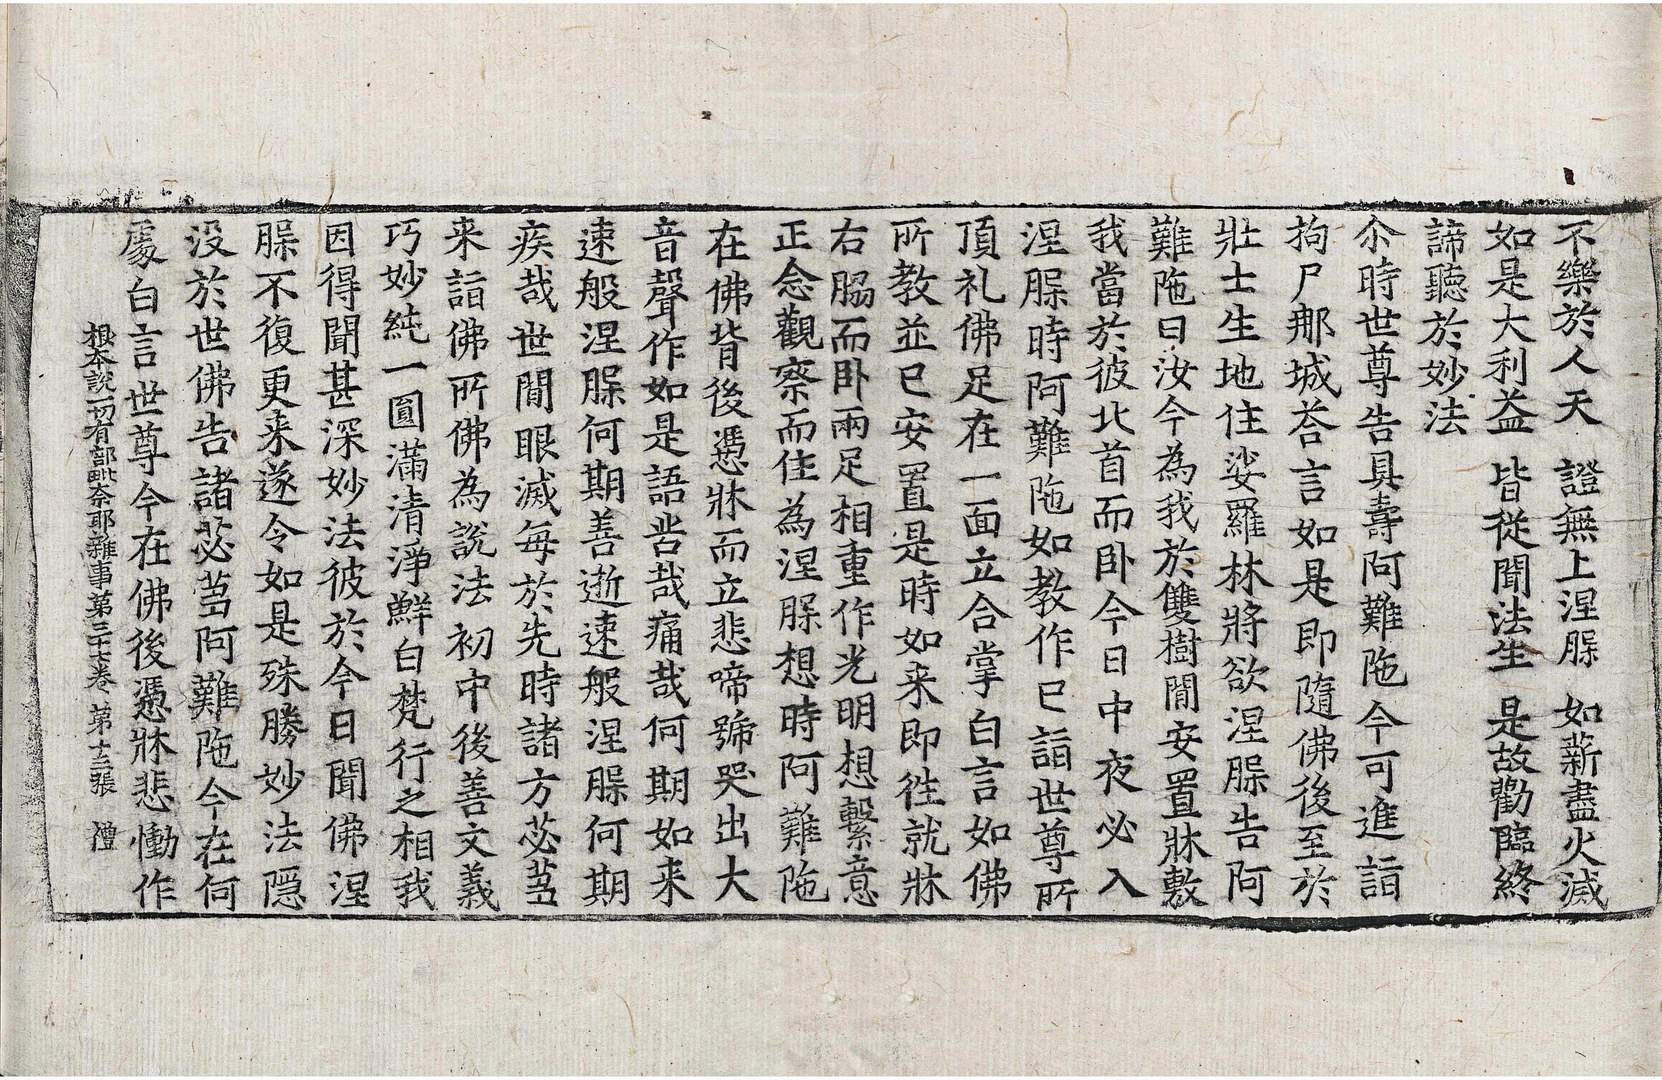 不樂於人天　證無上涅槃　如薪盡火滅
如是大利益　皆從聞法生　是故勸臨終
諦聽於妙法
尒時世尊告具壽阿難陁今可進詣
拘尸那城荅言如是即隨佛後至於
壯士生地住娑羅林將欲涅槃告阿
難陁曰汝今為我於雙樹間安置牀敷
我當於彼北首而卧今日中夜必入
涅槃時阿難陁如教作已詣世尊所
頂礼佛足在一面立合掌白言如佛
所教並已安置是時如来即往就牀
右脇而卧兩足相重作光明想繫意
正念觀察而住為涅槃想時阿難陁
在佛背後憑牀而立悲啼號哭出大
音聲作如是語苦哉痛哉何期如来
速般涅槃何期善逝速般涅槃何期
疾哉世間眼滅每於先時諸方苾芻
来詣佛所佛為說法初中後善文義
巧妙純一圓滿清淨鮮白梵行之相我
因得聞甚深妙法彼於今日聞佛涅
槃不復更来遂令如是殊勝妙法隱
没於世佛告諸苾芻阿難陁今在何
處白言世尊今在佛後憑牀悲慟作
根本說一切有部毗奈耶雜事第三十七卷　第十三張　禮